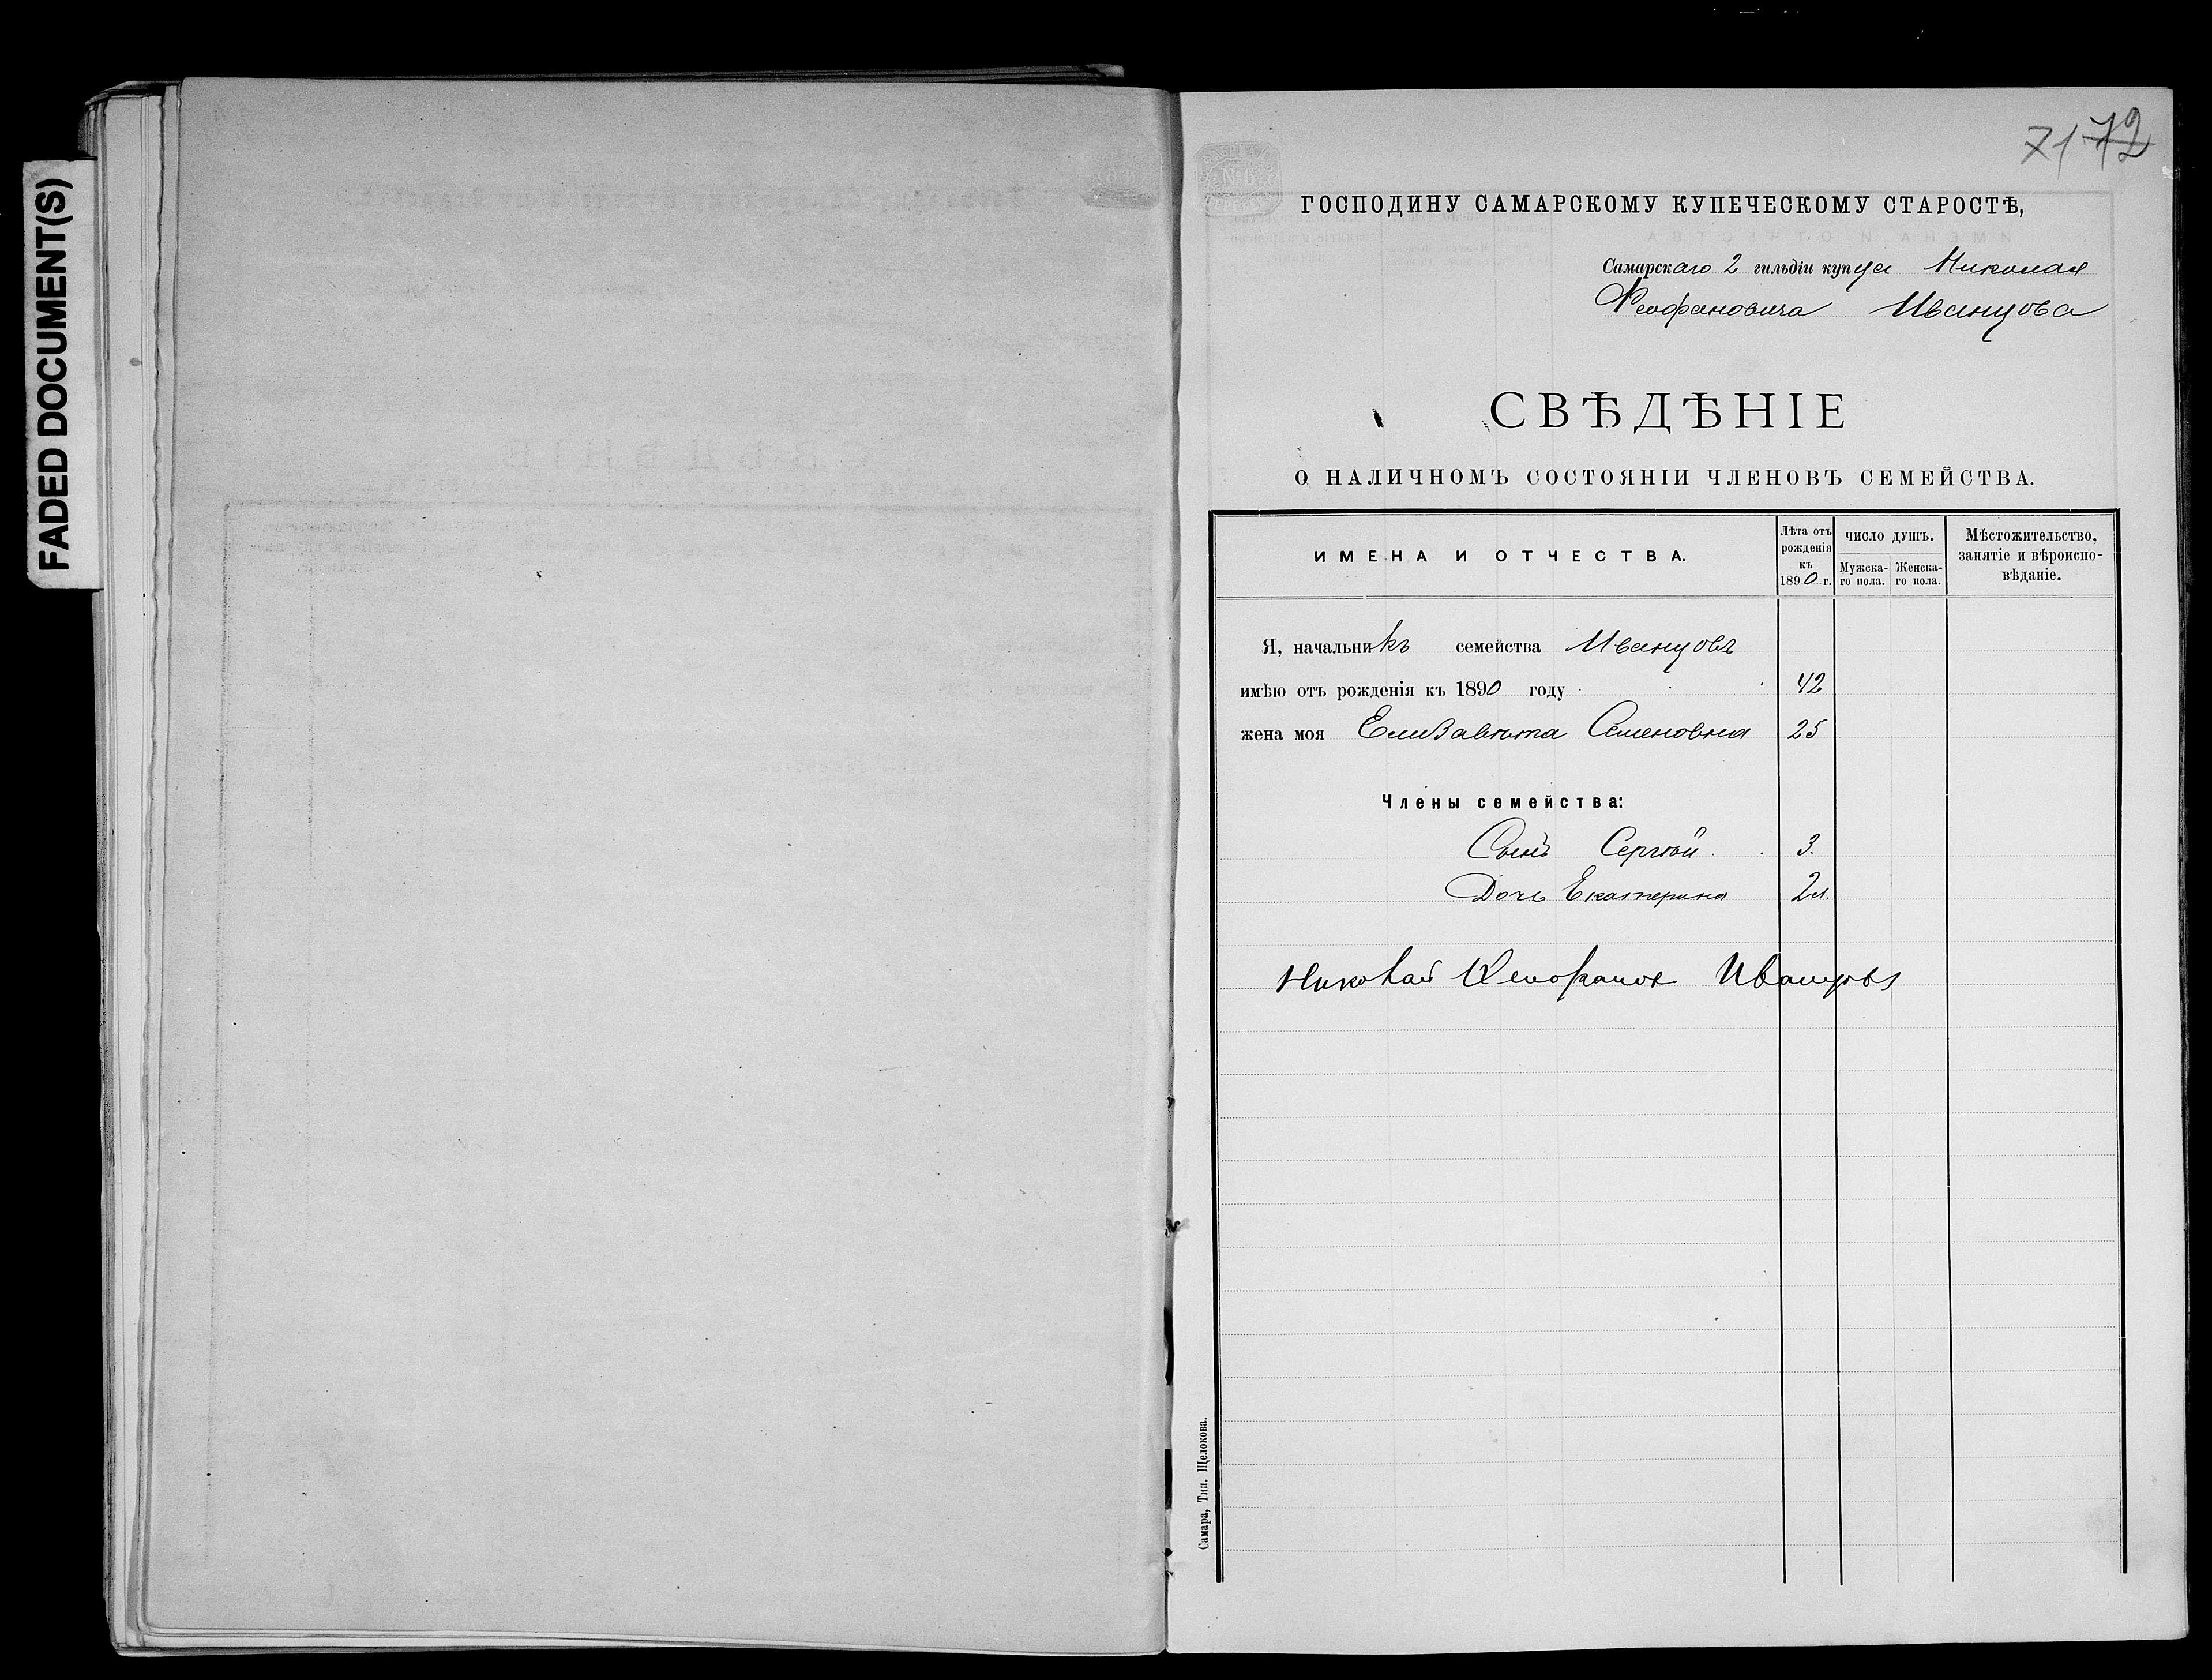 FADED DOCUMENT(S)
71 72
ГОСПОДИНУ САМАРСКОМУ КУПЕЧЕСКОМУ СТАРОСТѢ,
Самарскаго 2 гильдіи купца Николая
Ѳеофановича Иванцова
СВѢДѢНІЕ
О НАЛИЧНОМЪ СОСТОЯНІИ ЧЛЕНОВЪ СЕМЕЙСТВА.
ИМЕНА И ОТЧЕСТВА.
Лѣта отъ рожденія къ 1890 г.
ЧИСЛО ДУШЪ.
Мужска-го пола.
Женска-го пола.
Мѣстожительство, занятіе и вѣроиспо-вѣданіе.
Я, начальникъ семейства Иванцовъ
имѣю отъ рожденія къ 1890 году 42
жена моя Елизавѣта Семеновна 25
Члены семейства:
Сынъ Сергѣй 3.
Дочь Екатерина 2 л.
Николай Иванцовъ
Самара, Тип. Щелокова.